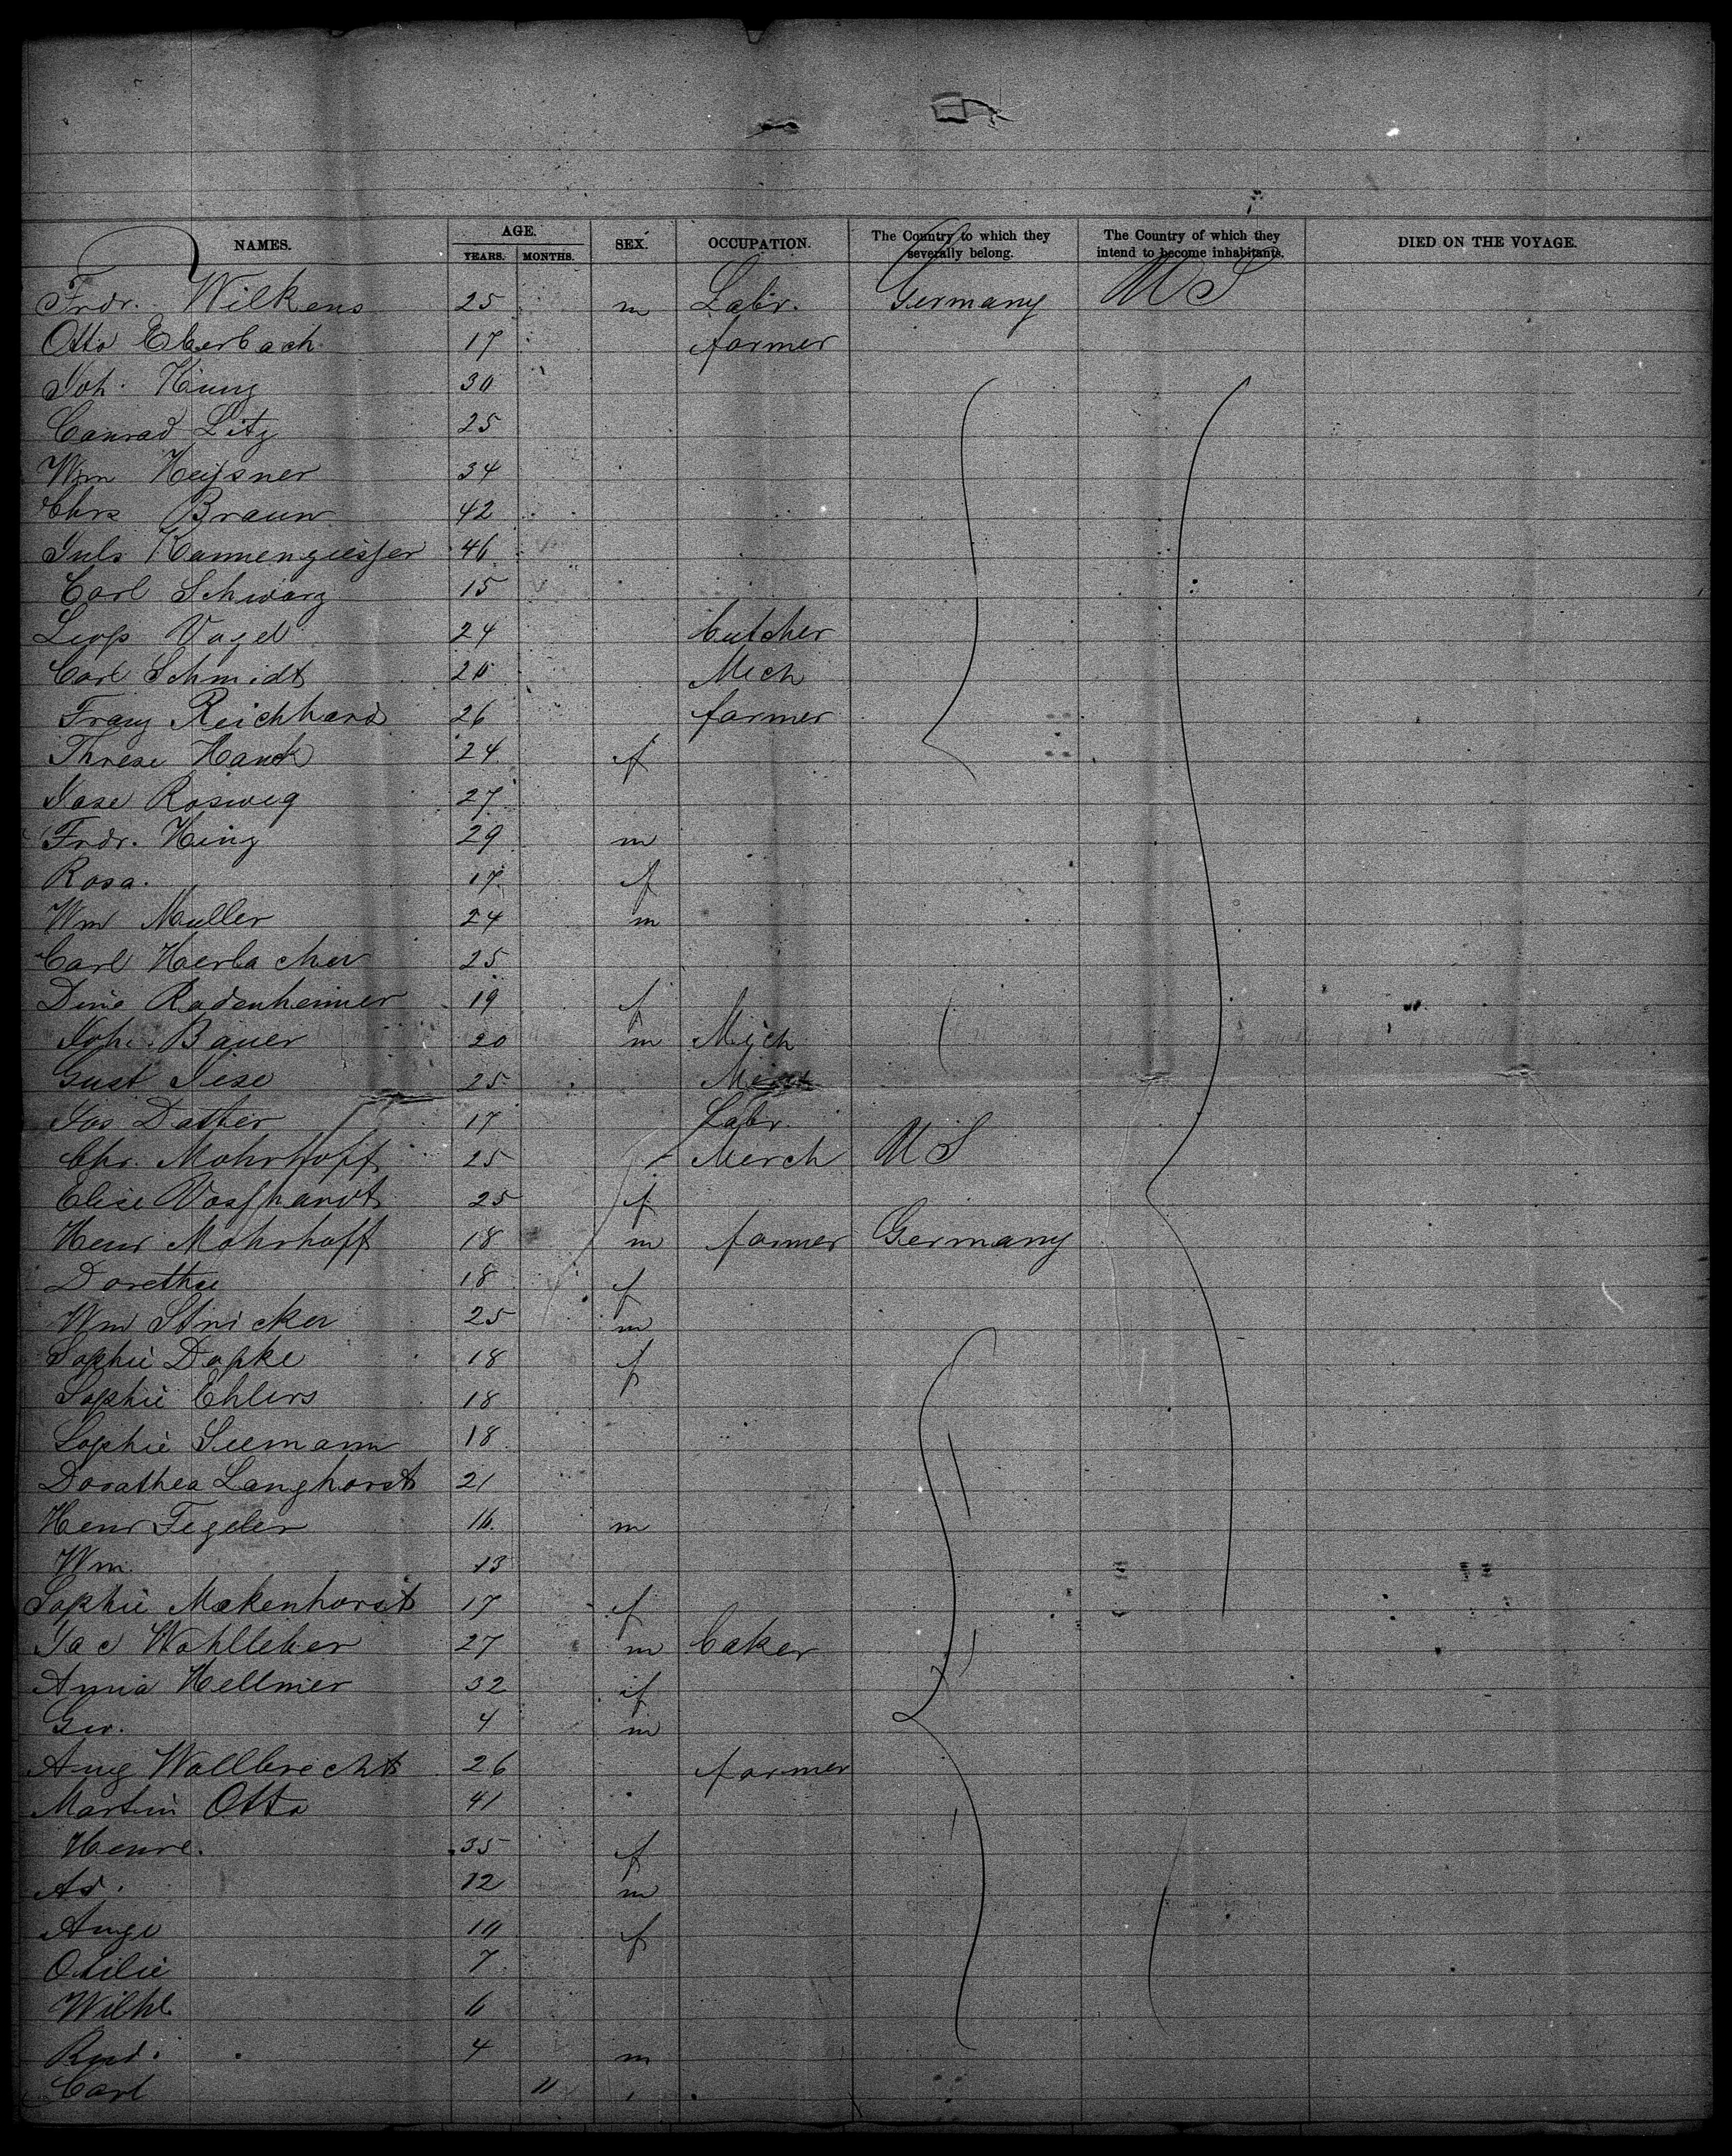 NAMES. AGE. SEX. OCCUPATION. The Country to which they severally belong. The Country of which they intend to become inhabitants. DIED ON THE VOYAGE.
YEARS. MONTHS.
Frdr. Wilkens 25 m Labr. Germany U S
Otto Eberbach 17 farmer
Joh. Küng 30
Conrad Litz 25
Wm Heissner 34
Chrs Braun 42
Juls Kannengiesser 46
Carl Schwarz 15
Leop Vogel 24 butcher
Carl Schmidt 20 Mech
Franz Reichhard 26 farmer
Threse Hauck 24 f
Jose Rosweg 27
Frdr. King 29 m
Rosa. 17 f
Wm Muller 24 m
Carl Herbacher 25
Dine Rodenheimer 19 f
Joh. Bauer 20 m Mech
Gust Iese 25
Jos Datter 17 Labr.
Chr. Mohrhoff 25 Merch U S
Elise 25 f
Henr Mohrhoff 18 m farmer Germany
Dorethe 18 f
Wm Stricker 25 m
Sophie Dopke 18 f
Sophie Ehlers 18
Sophie Seemann 18
Dorathea Langhorst 21
Henr Tegeler 16 m
Wm 13
Sophie Mokenhorst 17 f
Jac Wohlleber 27 m baker
Anna Hellmer 32 f
Geo. 4 m
Aug Wollbrecht 26 farmer
Martin Otto 41
Henre. 35 f
Ad. 12 m
Auge 10 f
Otilie 7
Wilhl 6
Rud. 4 m
Carl 11